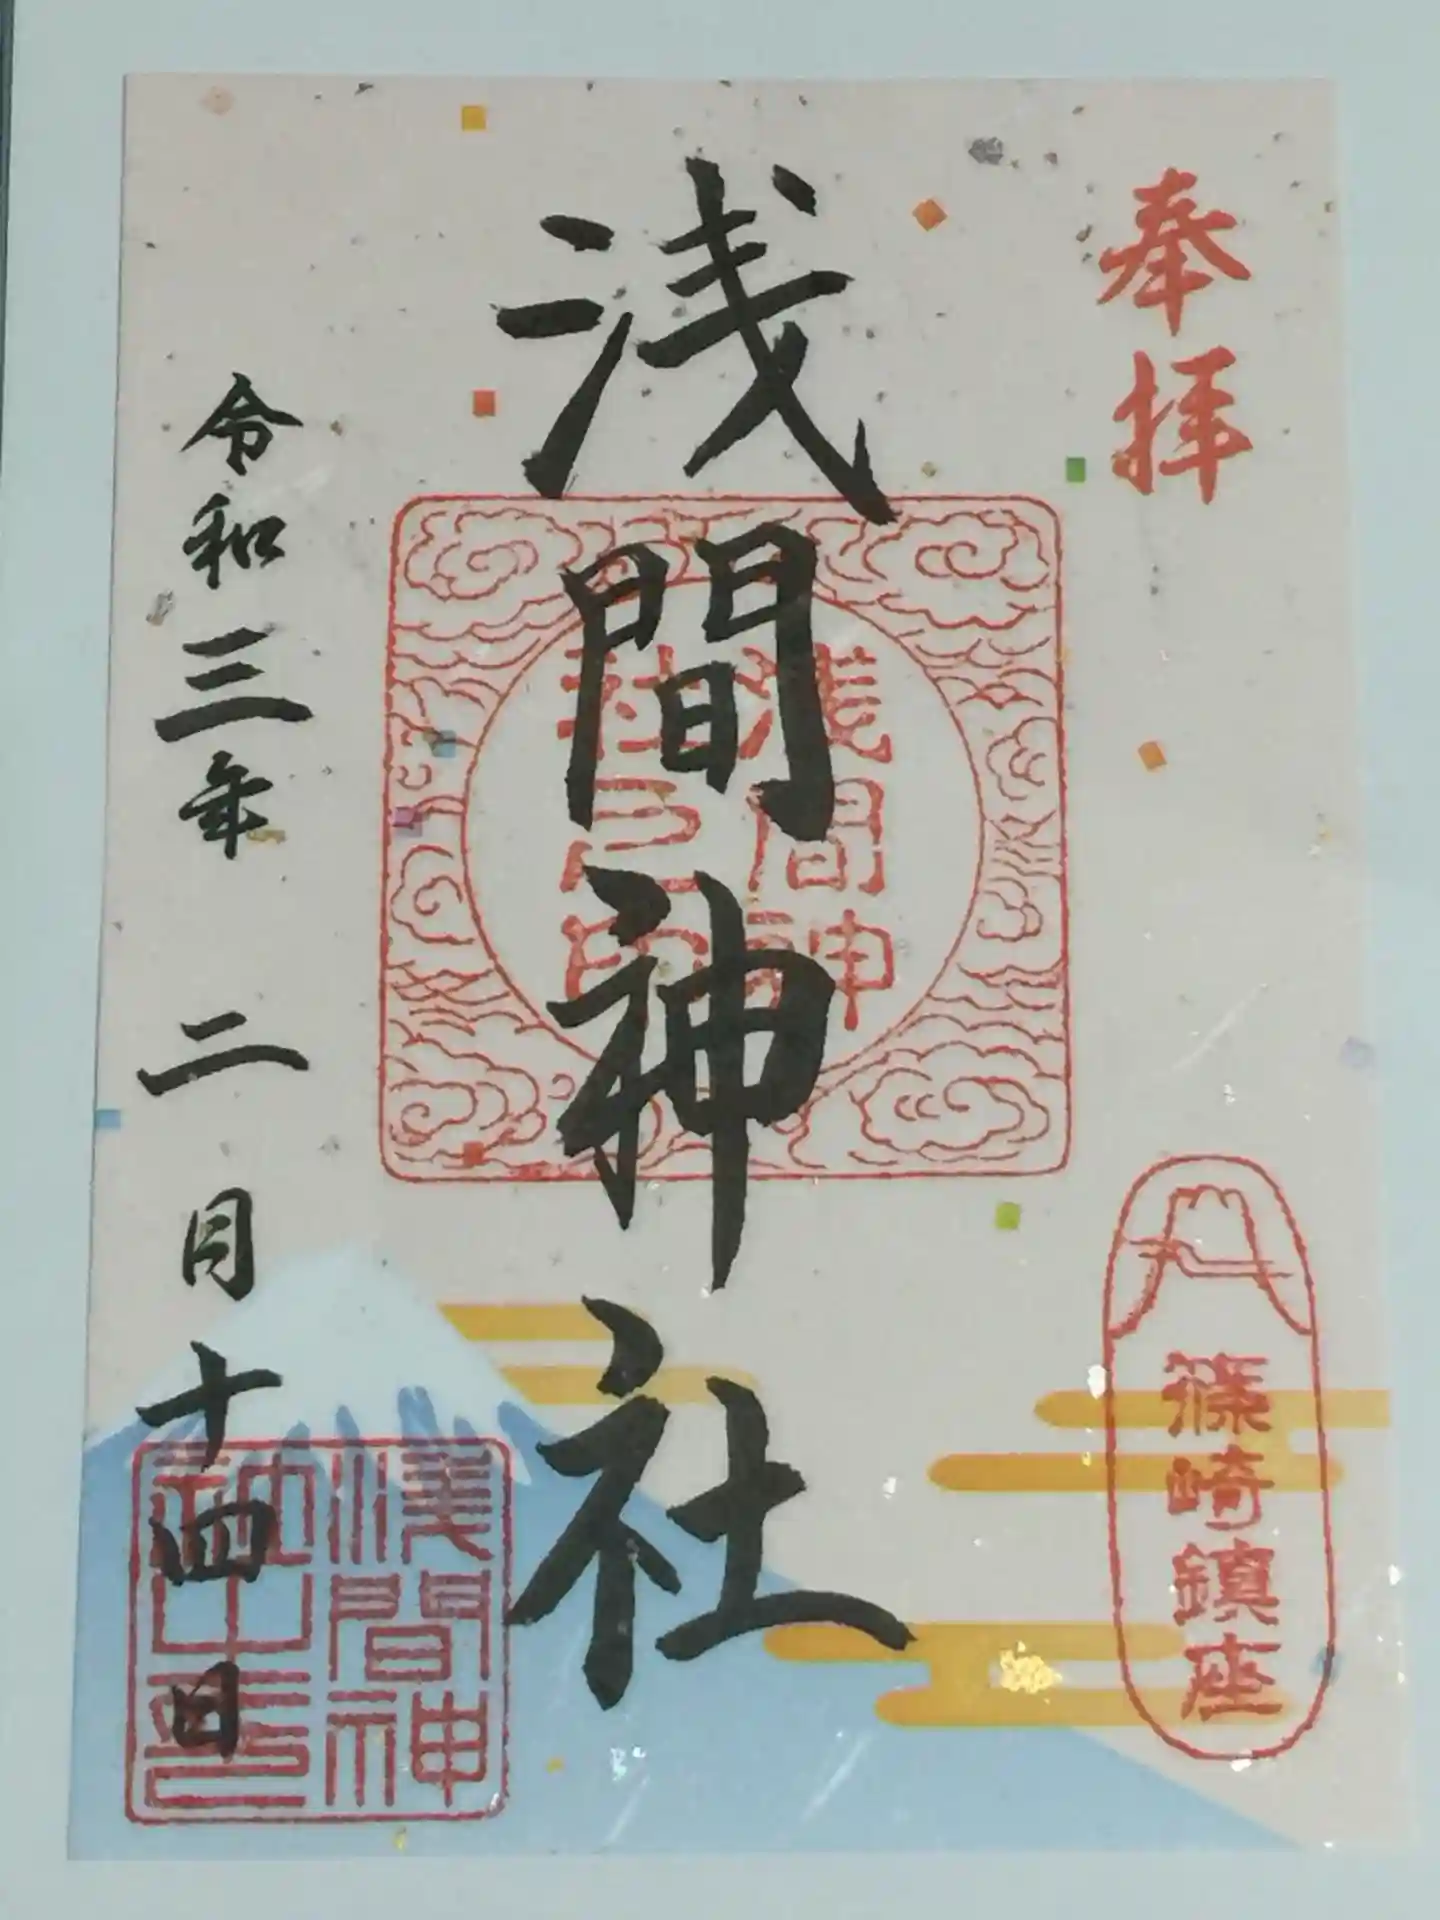 奉拝
篠崎鎮座
浅間神社
浅間神
社之印
令和三年 二月十四日
浅間神
社之印